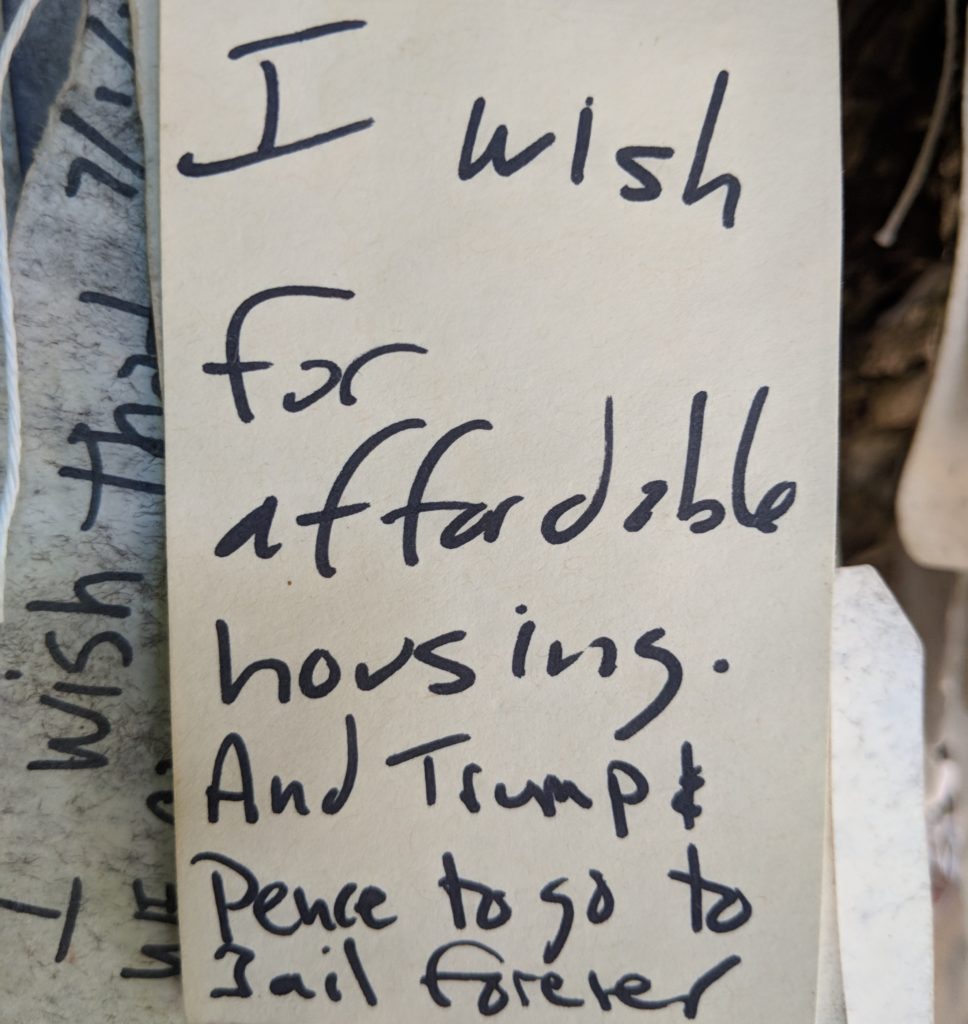 I wish
for
affordable
housing.
And Trump &
Pence to go to
Jail forever
I wish that